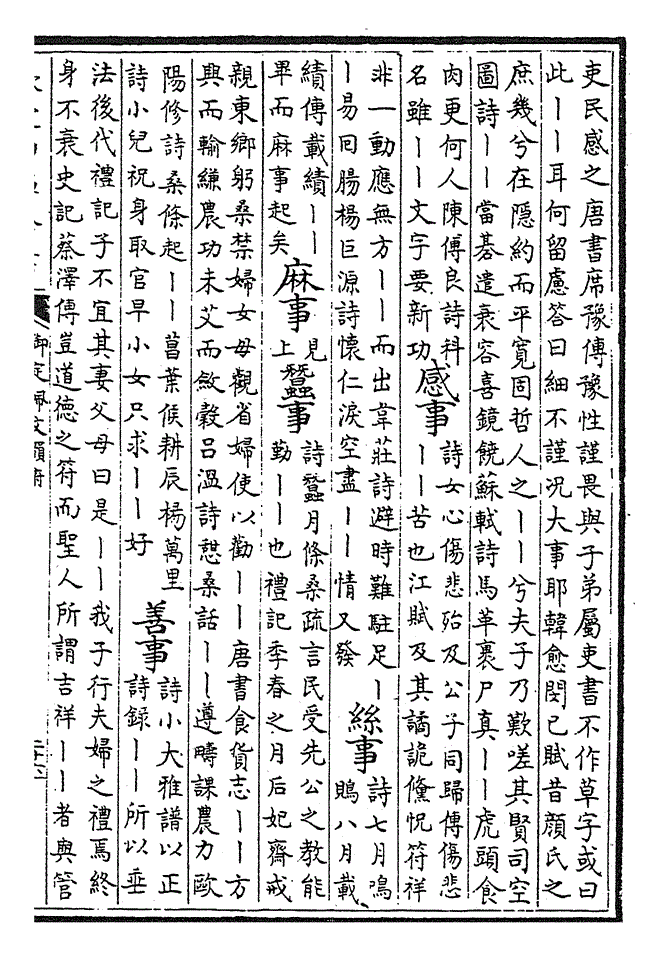 吏民感之唐書席豫傳豫性謹畏與子弟屬吏書不作草字或曰
此｜｜耳何留慮答曰細不謹况大事耶韓愈閔己賦昔顏氏之
庶幾兮在隱約而平寛固哲人之｜｜兮夫子乃歎嗟其賢司空
圖詩｜｜當碁遣衰容喜鏡饒蘇軾詩馬革裹尸真｜｜虎頭食
肉更何人陳傅良詩科
名雖｜｜文字要新功
感事
詩女心傷悲殆及公子同歸傳傷悲
｜｜苦也江賦及其譎詭儻怳符祥
非一動應無方｜｜而出韋莊詩避時難駐足｜
｜易回腸楊巨源詩懷仁淚空盡｜｜情又發
絲事
詩七月鳴
鵙八月載
績傳載績｜｜
畢而麻事起矣
麻事
見
上
蠶事
詩蠶月條桑疏言民受先公之教能
勤｜｜也禮記季春之月后妃齋戒
親東鄉躬桑禁婦女毋觀省婦使以勸｜｜唐書食貨志｜｜方
興而輸縑農功未艾而斂穀呂溫詩憇桑話｜｜遵疇課農力歐
陽修詩桑條起｜｜菖葉候耕辰楊萬里
詩小兒祝身取官早小女只求｜｜好
善事
詩小大雅譜以正
詩録｜｜所以垂
法後代禮記子不宜其妻父母曰是｜｜我子行夫婦之禮焉終
身不衰史記蔡澤傳豈道德之符而聖人所謂吉祥｜｜者與管
御定佩文韻府